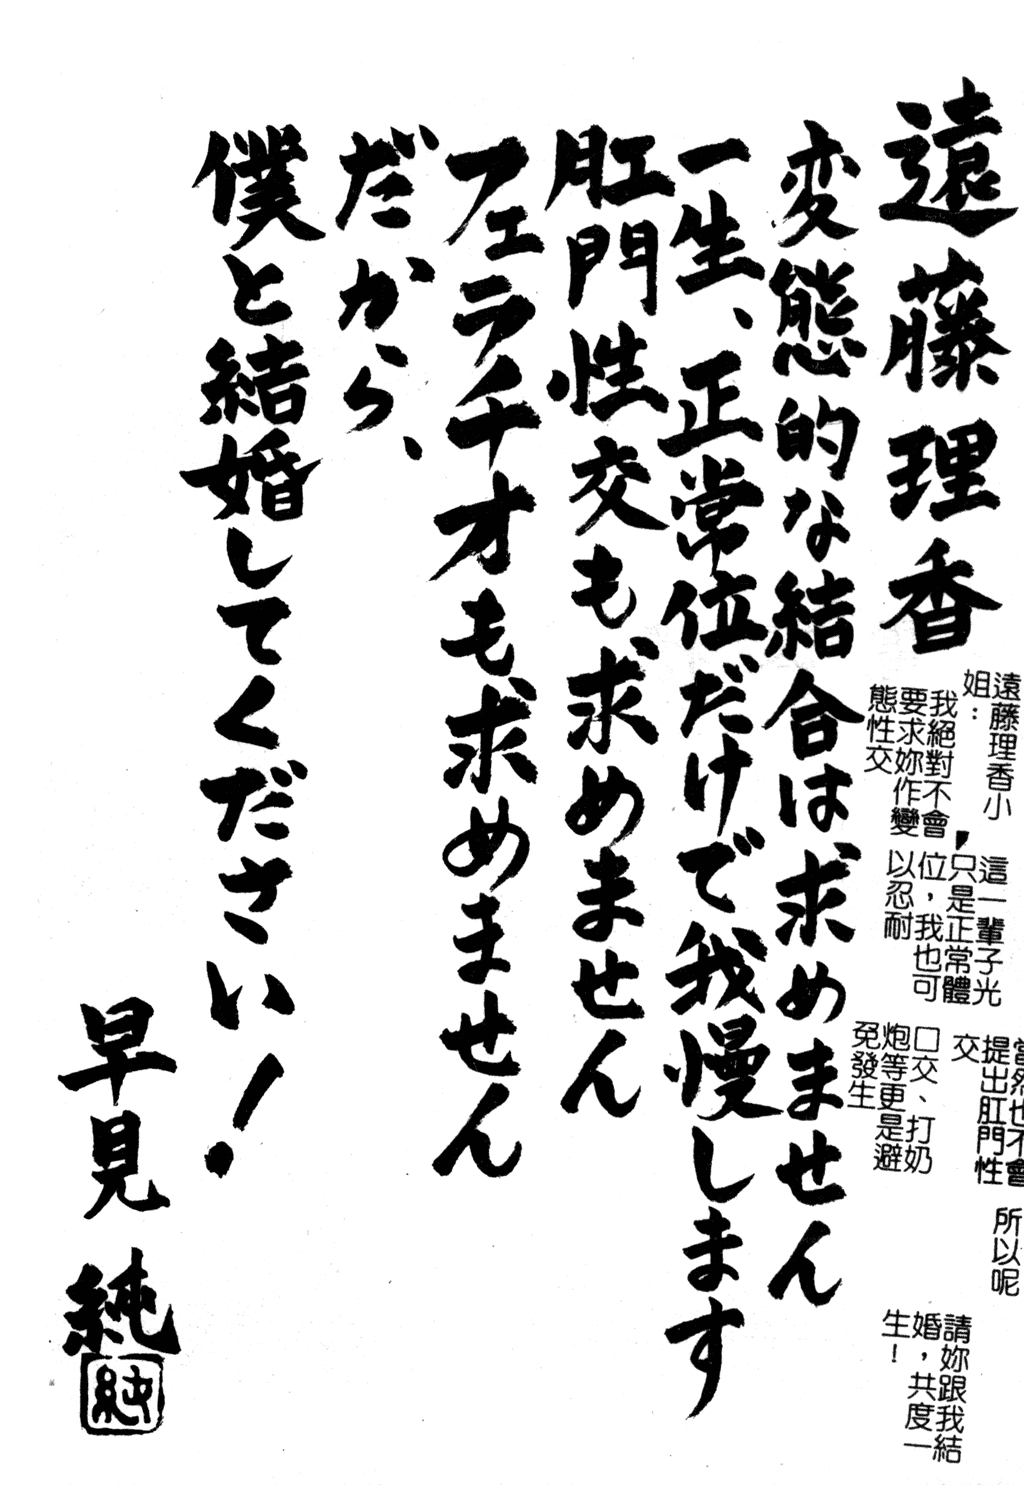 遠藤理香
変態的な結合は求めません
一生、正常位だけで我慢します
肛門性交も求めません
フェラチオも求めません
だから、
僕と結婚してください！
早見 純
純
遠藤理香小
姐：
我絕對不會，
要求妳作變
態性交
這一輩子光
只是正常體
位，我也可
以忍耐
當然也不會
提出肛門性
交
口交、打奶
炮等更是避
免發生
所以呢
請妳跟我結
婚，共度一
生！